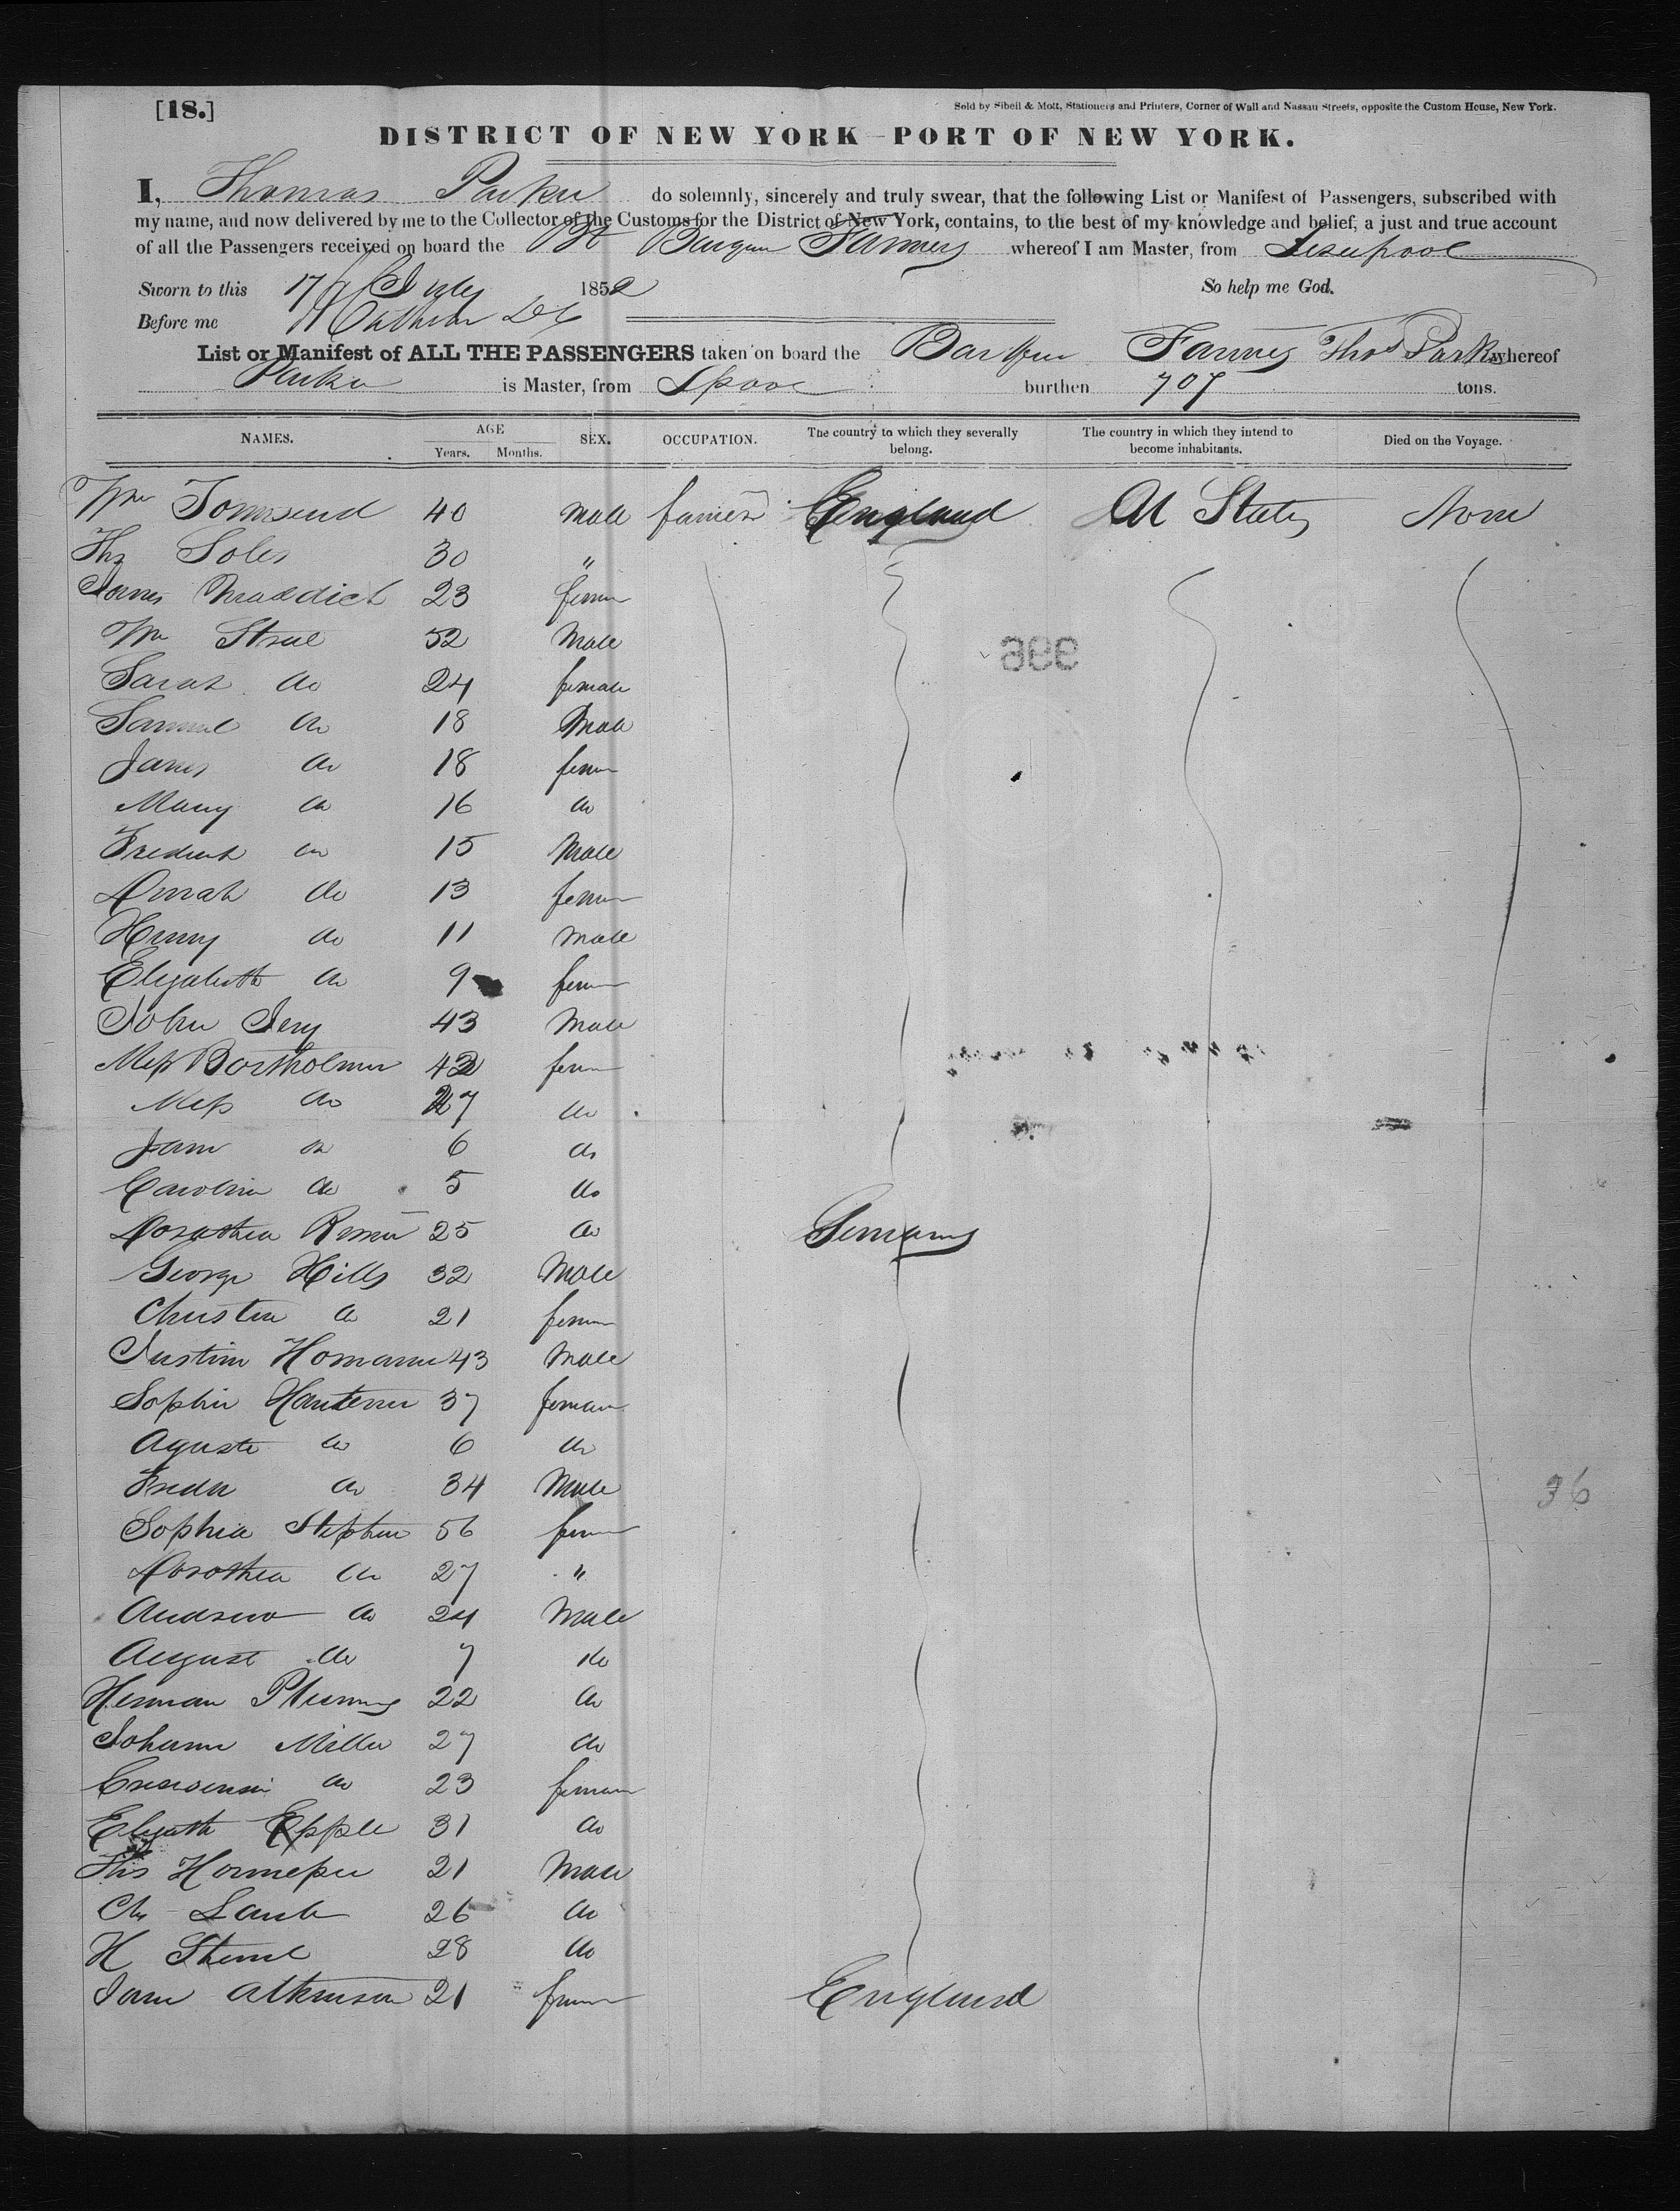 [18.]
Sold by Sibell & Mott, Stationers and Printers, Corner of Wall and Nassau Streets, opposite the Custom House, New York.
DISTRICT OF NEW YORK - PORT OF NEW YORK.
I, Thomas Parker do solemnly, sincerely and truly swear, that the following List or Manifest of Passengers, subscribed with
my name, and now delivered by me to the Collector of the Customs for the District of New York, contains, to the best of my knowledge and belief, a just and true account
of all the Passengers received on board the Barque Fanny whereof I am Master, from Liverpool
Sworn to this 17 July 1852 So help me God.
Before me
List or Manifest of ALL THE PASSENGERS taken on board the Barque Fanny Thos Parker whereof
Parker is Master, from Lpool burthen 707 tons.
NAMES. AGE Years. Months. SEX. OCCUPATION. The country to which they severally belong. The country in which they intend to become inhabitants. Died on the Voyage.
Wm Townsend 40 Male farmer England U States None
Ths Soles 30 "
James Maddick 23 fem
Wm 52 Male
Sarah do 24 female
Samuel do 18 Male
James do 18 fem
Mary do 16 do
Frederick do 15 Male
do 13 fem
Henry do 11 Male
Elizabeth do 9 fem
John 43 Male
Mrs Bartholmew 42 fem
Miss do 27 do
Jane do 6 do
Caroline do 5 do
Dorothea 25 do Germany
George Hills 32 Male
Christin do 21 fem
Justin Homann 43 Male
Sophie 37 female
Aguste do 6 do
Fredk do 34 Male
Sophia Stephen 56 fem
Dorothea do 27 "
Andrew do 24 Male
August do 7 do
Herman 22 do
Johann Miller 27 do
do 23 female
Elizath Epple 31 do
Ths 21 Male
Ch Laub 26 do
H 28 do
Jane Atkinson 21 fem England
36